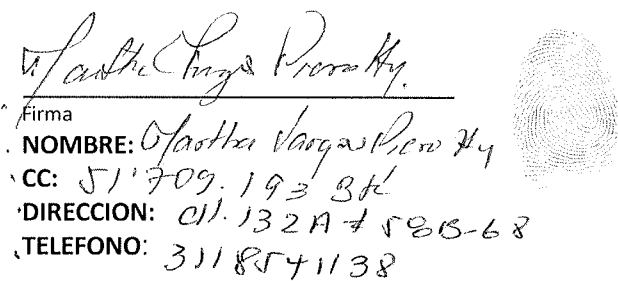 Martha Vargas Pierotty.
Firma
NOMBRE: Martha Vargas Pierotty
CC: 51'709.193 Btá
DIRECCION: Cll. 132A # 58B-68
TELEFONO: 3118541138